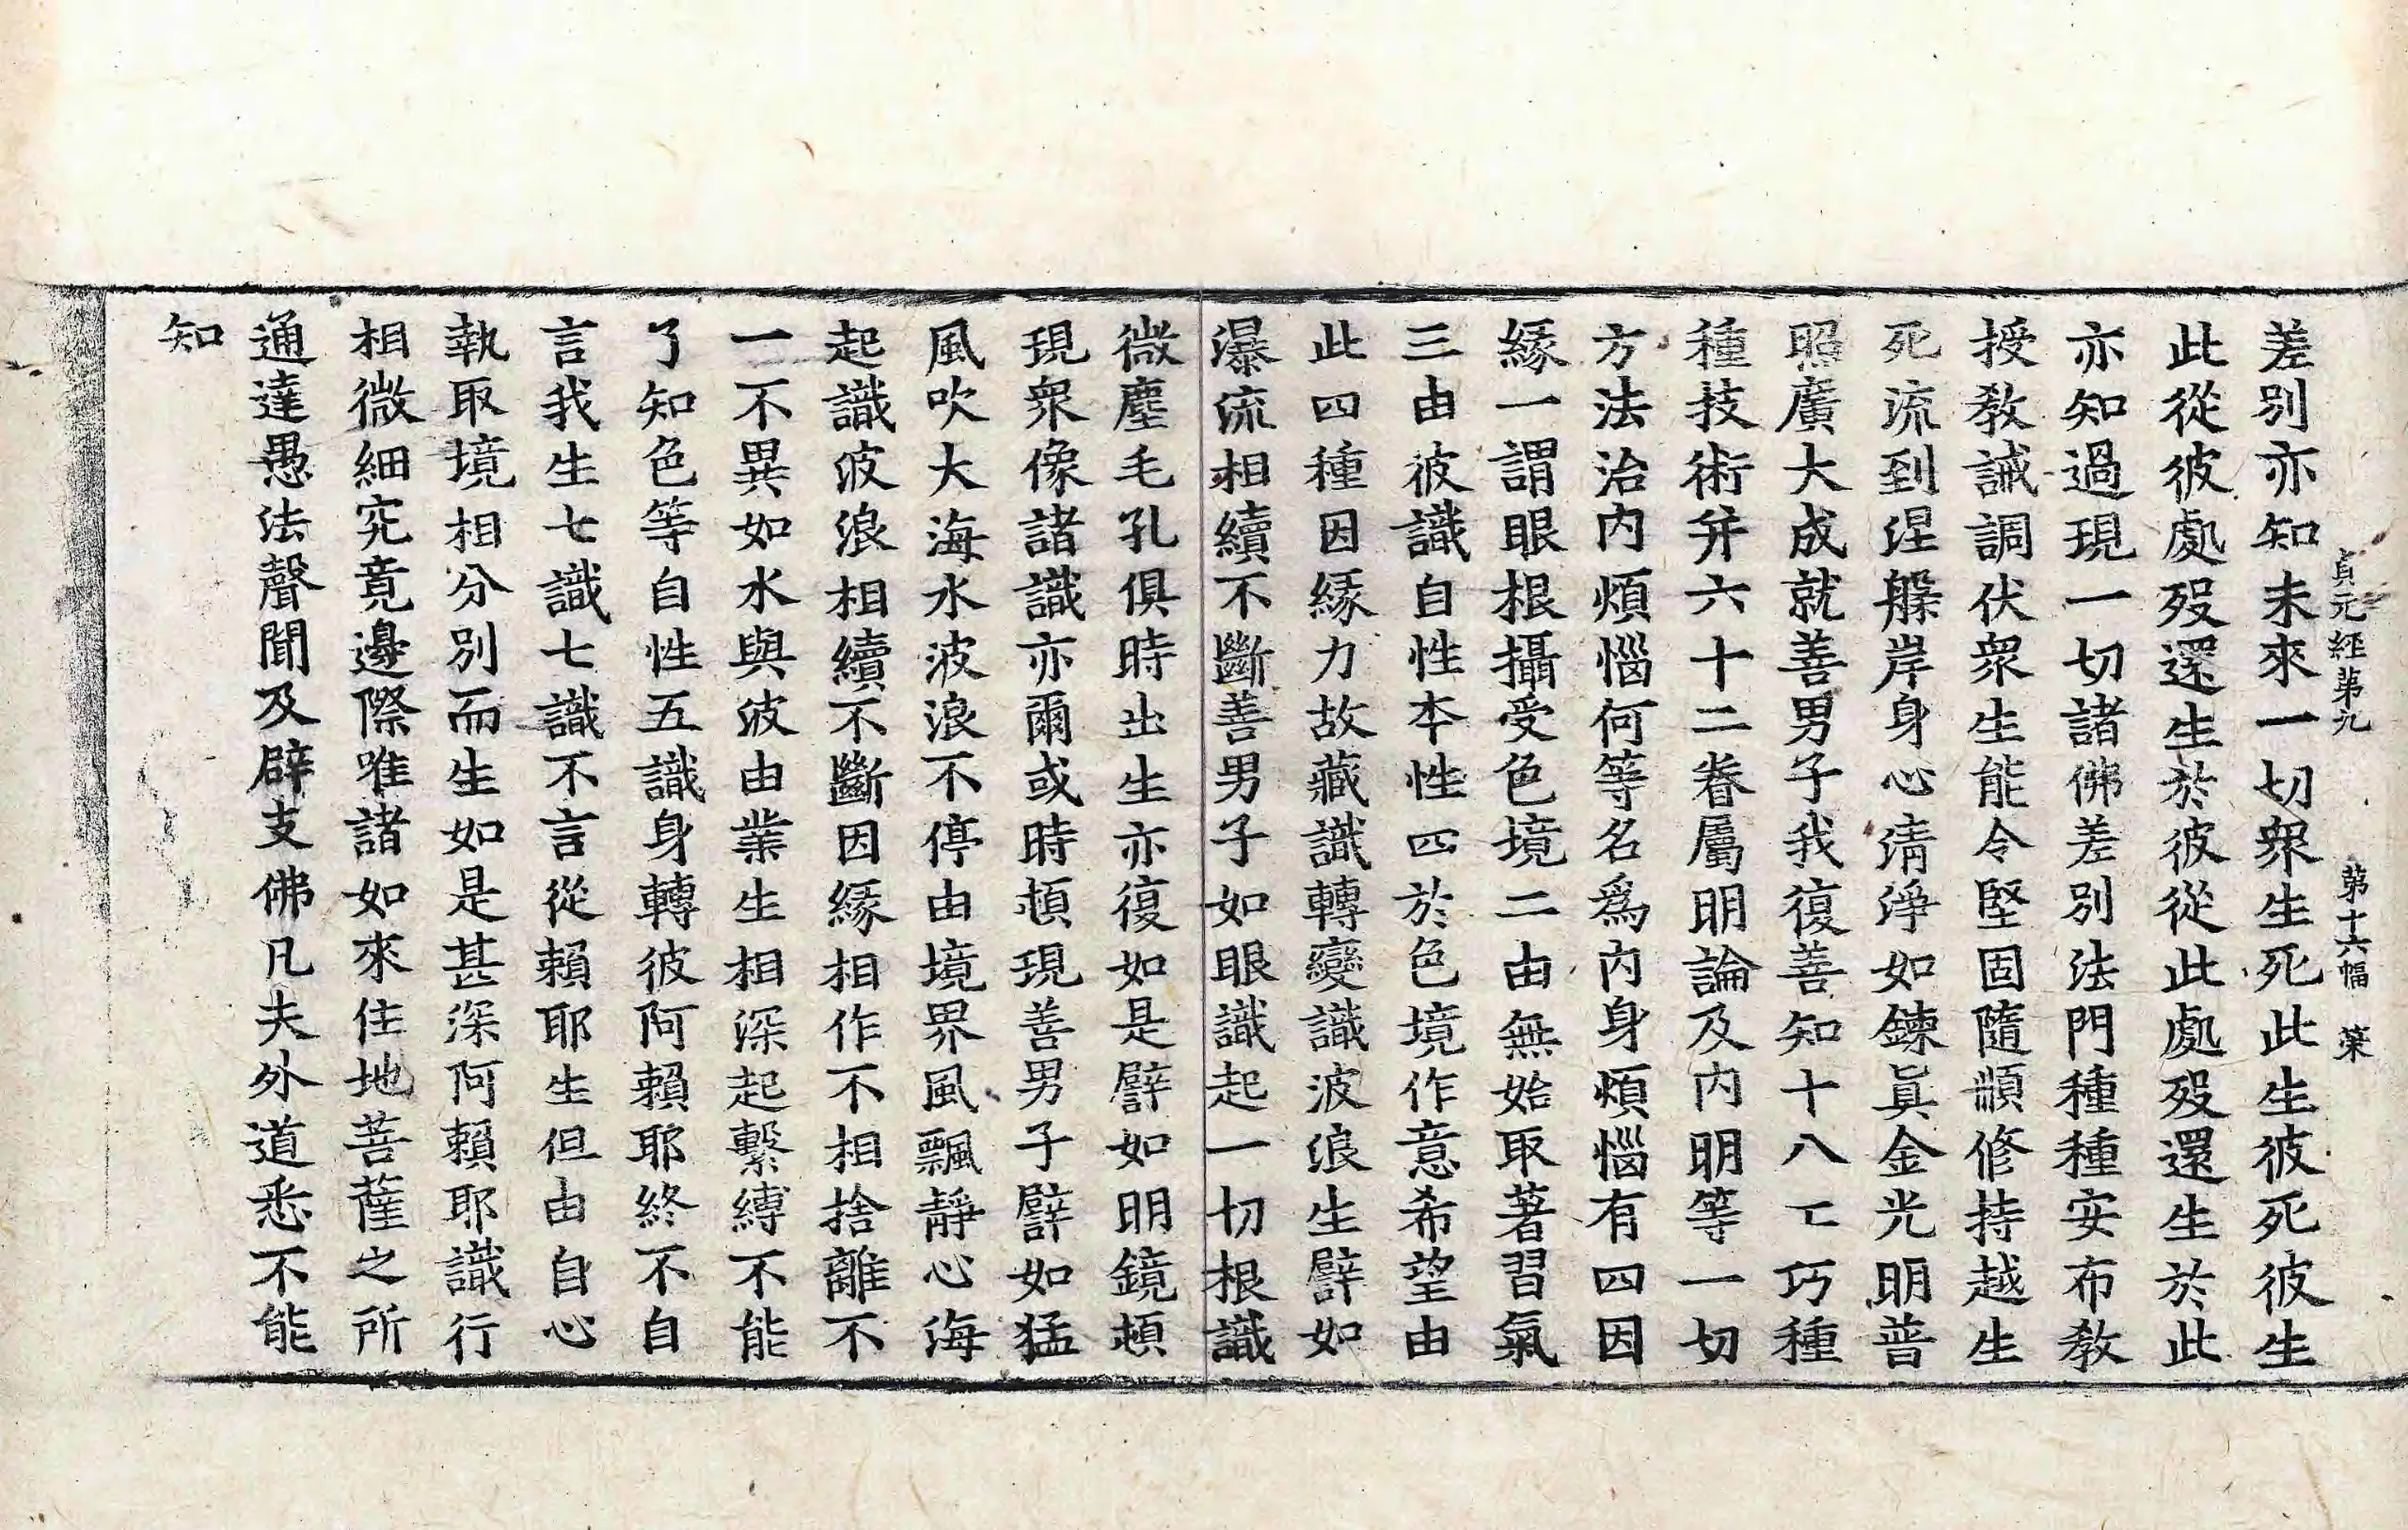 貞元經第九　第十六幅　葉
差別亦知未來一切衆生死此生彼死彼生
此從彼處歿還生於彼從此處歿還生於此
亦知過現一切諸佛差別法門種種安布教
授教誡調伏衆生能令堅固隨順修持越生
死流到涅槃岸身心淸淨如鍊眞金光明普
照廣大成就善男子我復善知十八工巧種
種技術幷六十二眷屬明論及内明等一切
方法治内煩惱何等名爲内身煩惱有四因
緣一謂眼根攝受色境二由無始取著習氣
三由彼識自性本性四於色境作意希望由
此四種因緣力故藏識轉變識波浪生譬如
瀑流相續不斷善男子如眼識起一切根識
微塵毛孔俱時出生亦復如是譬如明鏡頓
現衆像諸識亦爾或時頓現善男子譬如猛
風吹大海水波浪不停由境界風飄靜心海
起識波浪相續不斷因緣相作不相捨離不
一不異如水與波由業生相深起繫縛不能
了知色等自性五識身轉彼阿賴耶終不自
言我生七識七識不言從賴耶生但由自心
執取境相分別而生如是甚深阿賴耶識行
相微細究竟邊際唯諸如來住地菩薩之所
通達愚法聲聞及辟支佛凡夫外道悉不能
知